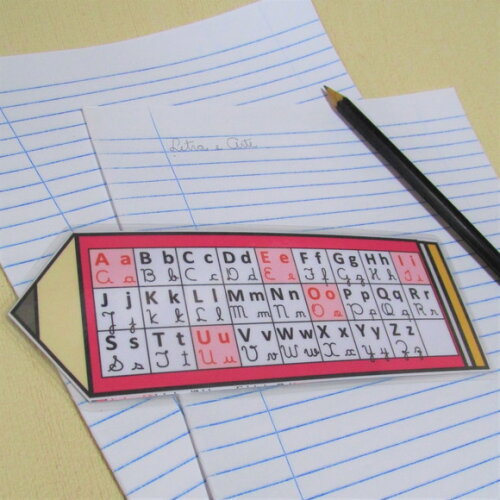 Letra e Arte
Aa Bb Cc Dd Ee Ff Gg Hh Ii
Aa Bb Cc Dd Ee Ff Gg Hh Ii
Jj Kk Ll Mm Nn Oo Pp Qq Rr
Jj Kk Ll Mm Nn Oo Pp Qq Rr
Ss Tt Uu Vv Ww Xx Yy Zz
Ss Tt Uu Vv Ww Xx Yy Zz